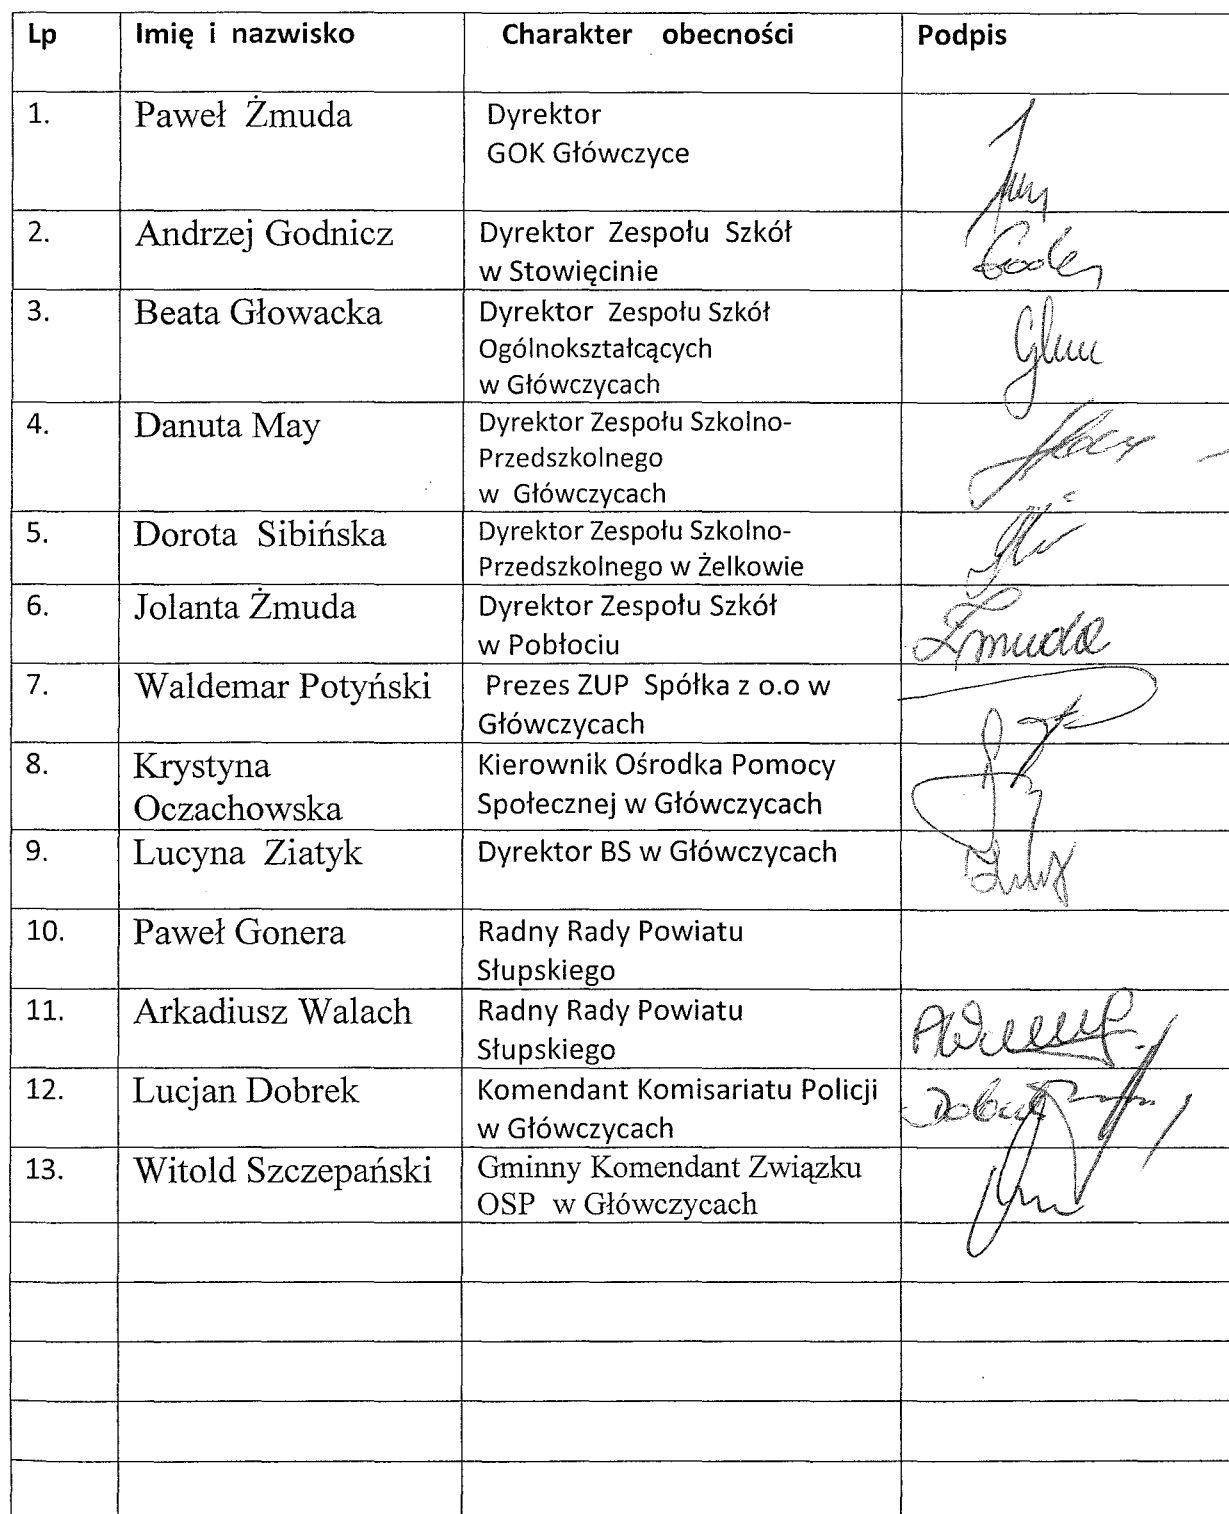 Lp Imię i nazwisko Charakter obecności Podpis
1. Paweł Żmuda Dyrektor
GOK Główczyce
2. Andrzej Godnicz Dyrektor Zespołu Szkół
w Stowięcinie
3. Beata Głowacka Dyrektor Zespołu Szkół
Ogólnokształcących
w Główczycach
4. Danuta May Dyrektor Zespołu Szkolno-
Przedszkolnego
w Główczycach
5. Dorota Sibińska Dyrektor Zespołu Szkolno-
Przedszkolnego w Żelkowie
6. Jolanta Żmuda Dyrektor Zespołu Szkół Żmuda
w Pobłociu
7. Waldemar Potyński Prezes ZUP Spółka z o.o w
Główczycach
8. Krystyna Kierownik Ośrodka Pomocy
Oczachowska Społecznej w Główczycach
9. Lucyna Ziatyk Dyrektor BS w Główczycach
10. Paweł Gonera Radny Rady Powiatu
Słupskiego
11. Arkadiusz Walach Radny Rady Powiatu
Słupskiego
12. Lucjan Dobrek Komendant Komisariatu Policji
w Główczycach
13. Witold Szczepański Gminny Komendant Związku
OSP w Główczycach